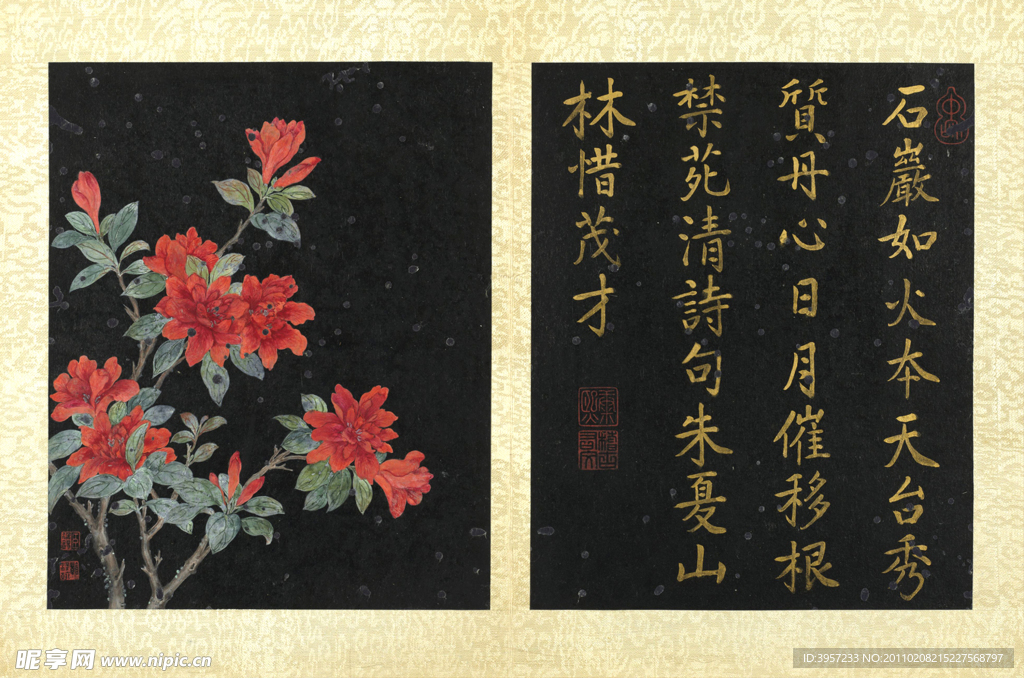 石巖如火本天台秀
質丹心日月催移根
禁苑清詩句朱夏山
林惜茂才
昵享网 www.nipic.cn
ID:3957233 NO:20110208215227568797